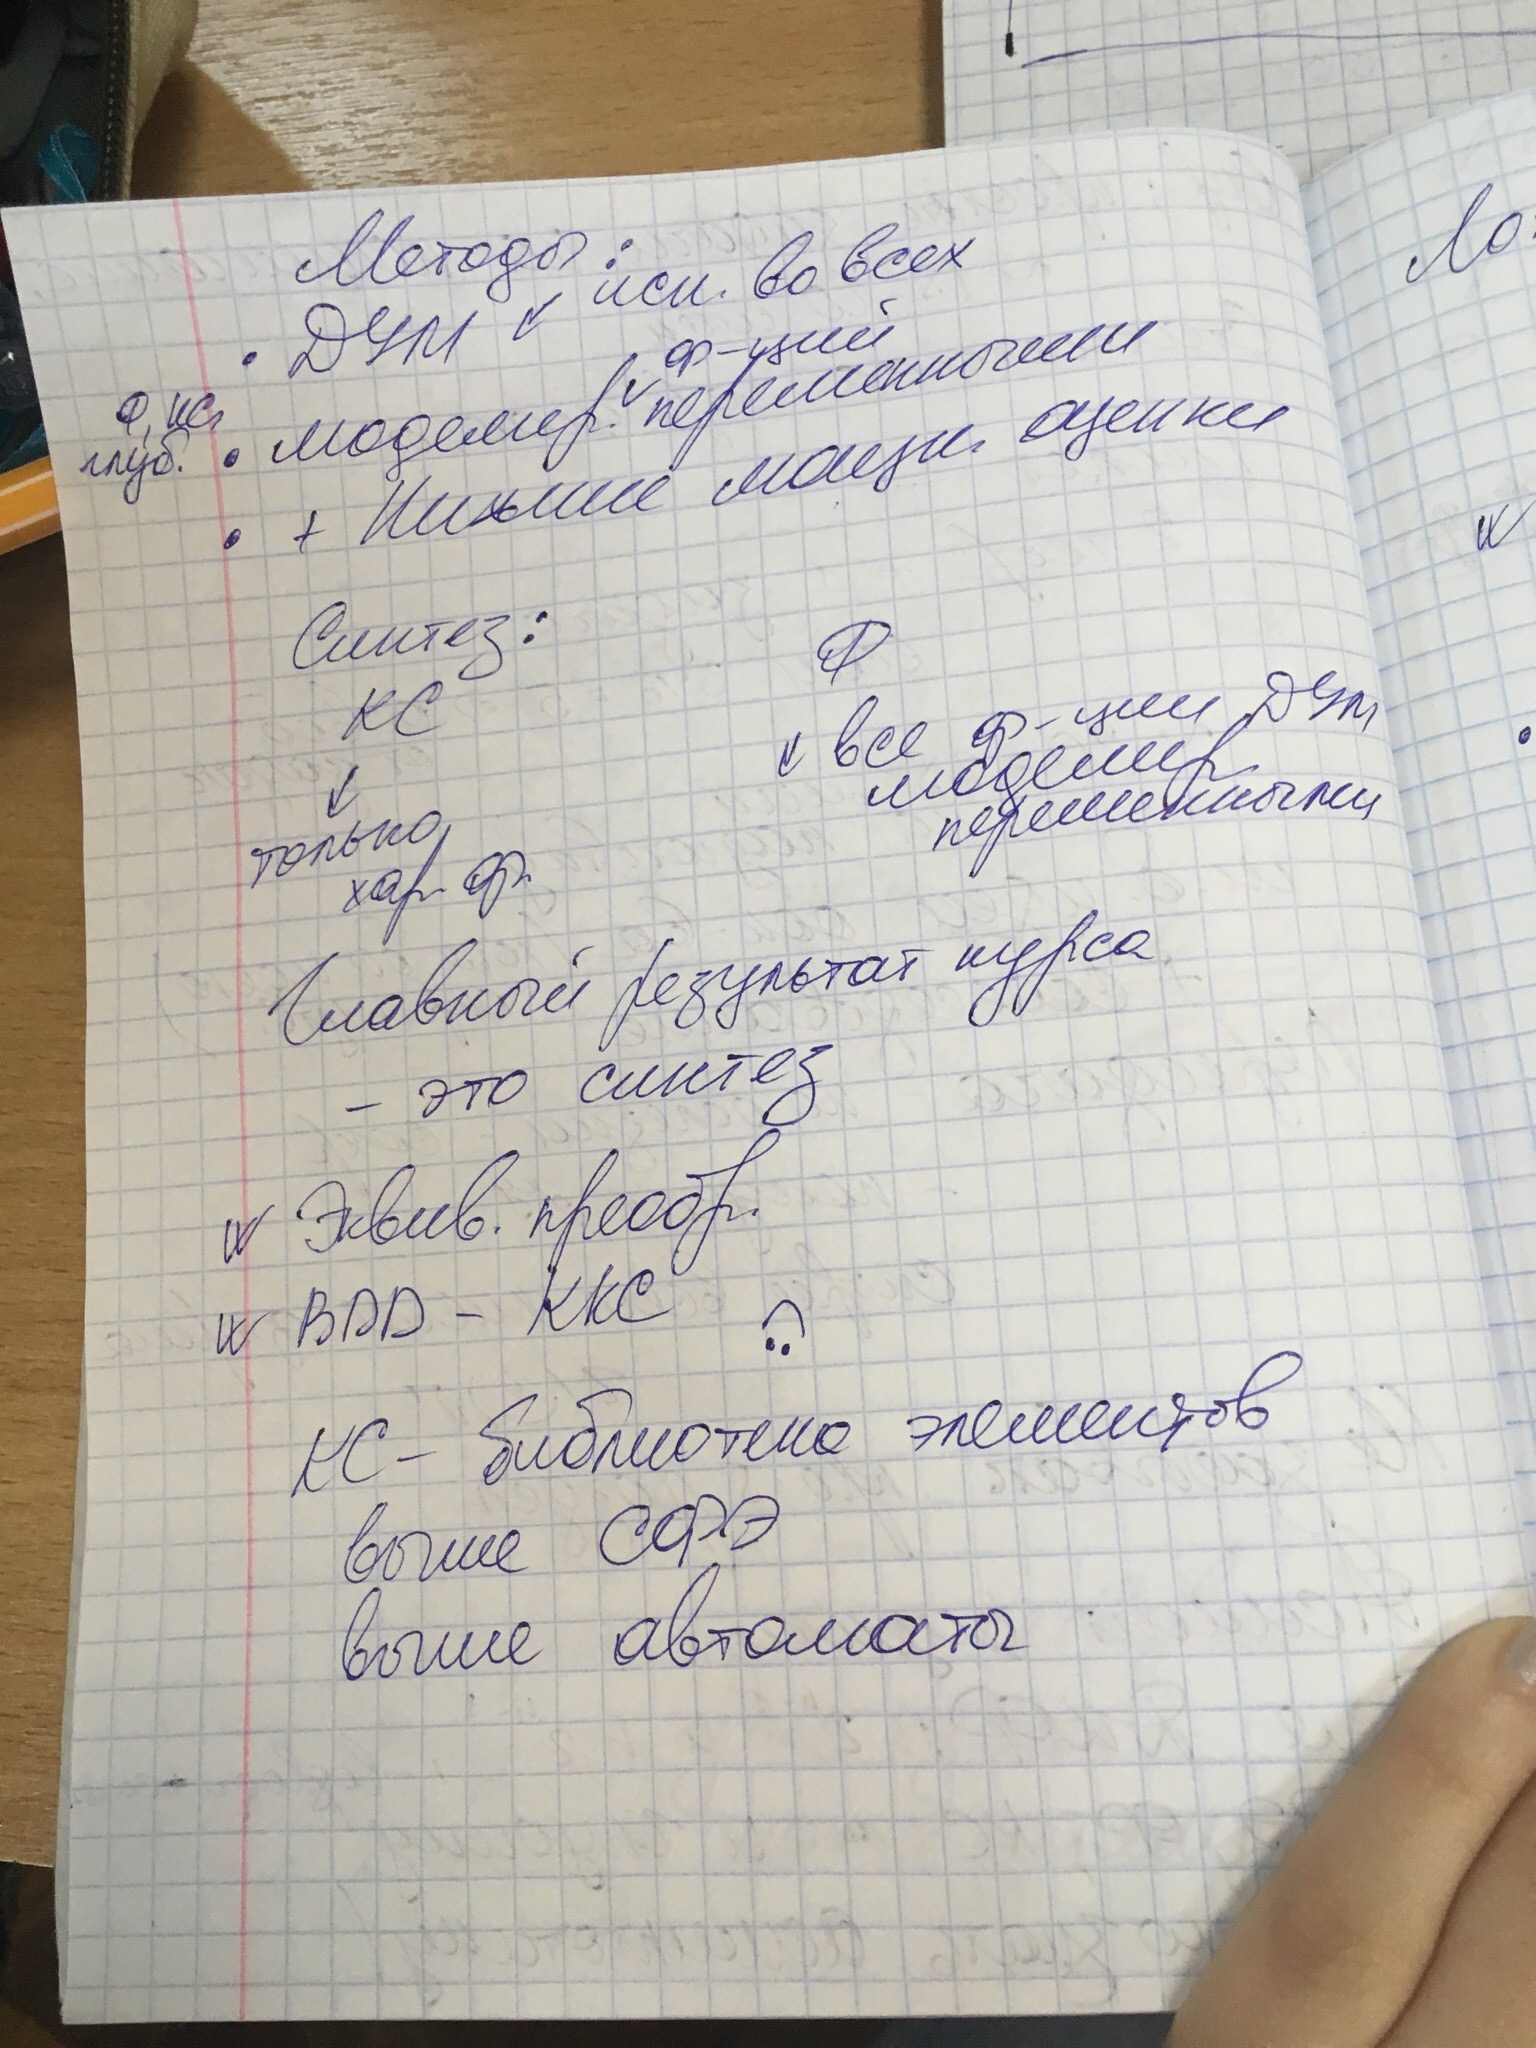 Методы:
• ДУМ ↙ исп. во всех
Ф, КС,
глуб. • моделир. ф-ций
переменными
• + Нижние мощн. оценки
Синтез:
КС Ф
↙ только
хар. ф.
↙ все ф-ции ДУМ
моделир.
переменными
Главный результат курса
- это синтез
Эквив. преобр.
BDD - ККС :(
КС - библиотека элементов
выше СФЭ
выше автоматы
Ло